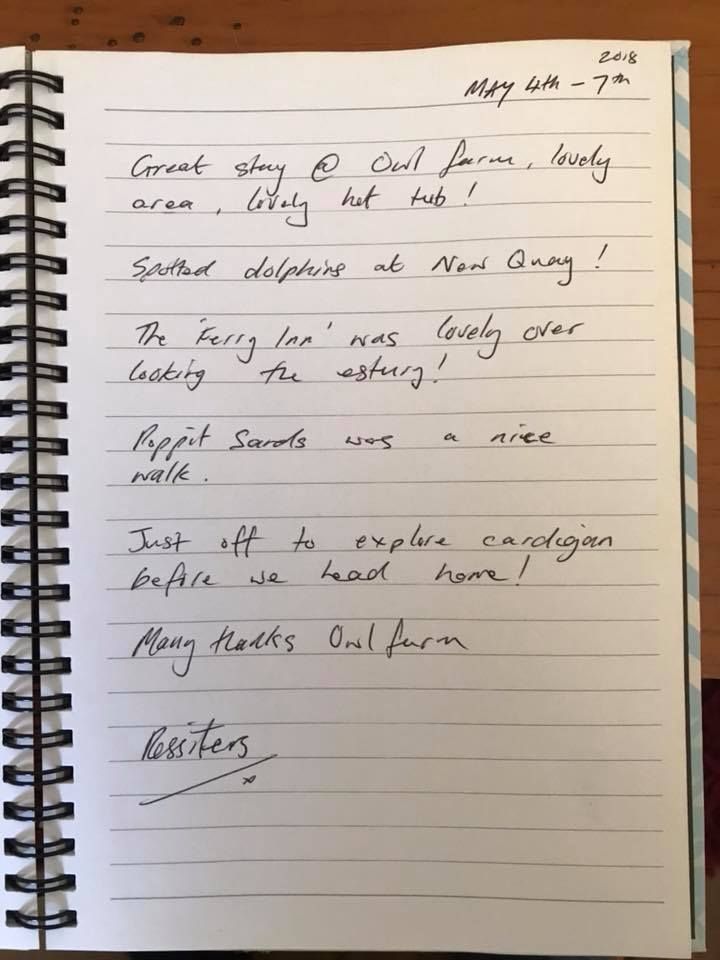 2018
MAY 4th - 7th
Great stay @ Owl farm, lovely
area, lovely hot tub!
Spotted dolphins at New Quay!
The 'Ferry Inn' was lovely over
looking the estury!
Poppit Sands was a nice
walk.
Just off to explore cardigan
before we head home!
Many thanks Owl farm
Rossiters
x